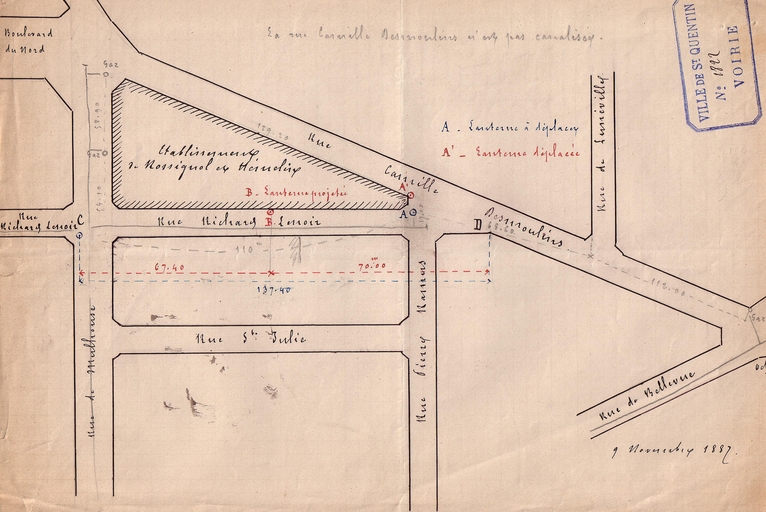 La rue Camille Desmoulins n'est pas canalisée.
Boulevard
du Nord
VILLE DE ST QUENTIN
No 1822
VOIRIE
Gaz
A - Lanterne à déplacer
A' - Lanterne déplacée
Rue de Lunéville
Rue
Camille
Desmoulins
Etablissements
de Rossignol et
B - Lanterne projetée
A'
A
B
Rue
Richard Lenoir
C
Rue Richard Lenoir
D
110m
67.40
70.00
137.40
118.00
Rue Ste Julie
Rue de Mulhouse
Rue Pierre Ramus
Rue de Bellevue
9 Novembre 1887.